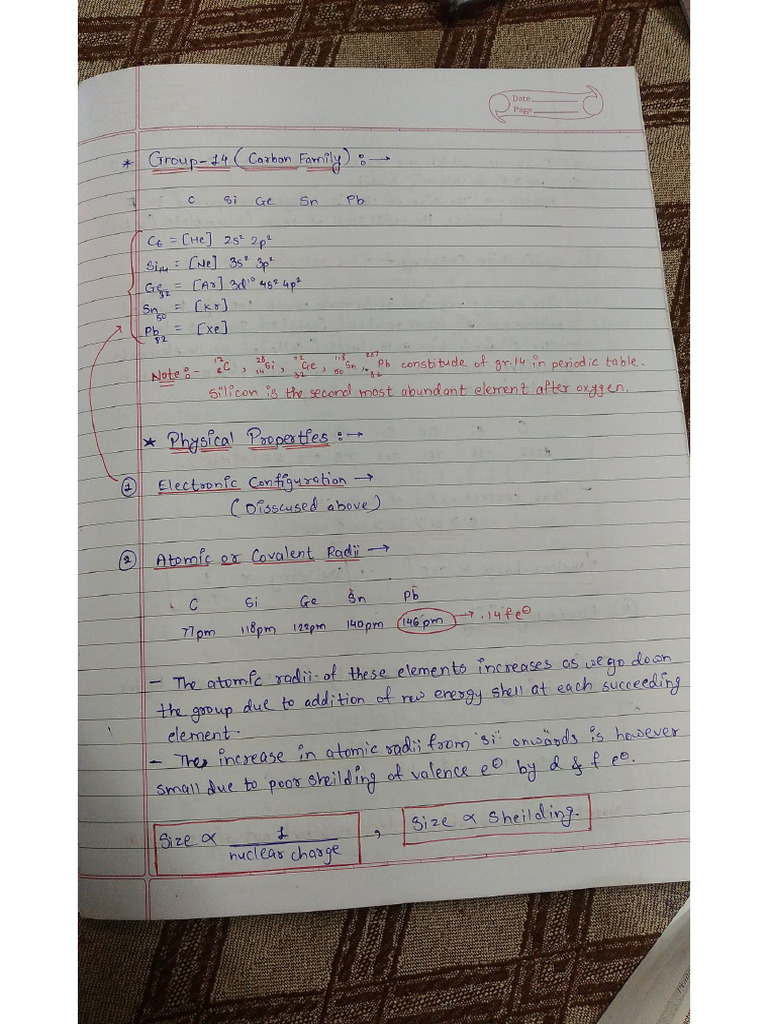 Date
Page
* Group-14 (Carbon Family) :→
C Si Ge Sn Pb
C6 = [He] 2s² 2p²
Si14 = [Ne] 3s² 3p²
Ge32 = [Ar] 3d¹⁰ 4s² 4p²
Sn50 = [Kr]
Pb82 = [Xe]
Note :- ¹²₆C , ²⁸₁₄Si , ⁷²₃₂Ge , ¹¹⁸₅₀Sn , ²⁰⁷₈₂Pb constitude of gr.14 in periodic table.
Silicon is the second most abundant element after oxygen.
* Physical Properties :→
① Electronic Configuration →
(Disscused above)
② Atomic or Covalent Radii →
C Si Ge Sn Pb
77pm 118pm 122pm 140pm 146pm → 14f e⊖
- The atomic radii of these elements increases as we go down
the group due to addition of new energy shell at each succeeding
element.
- The increase in atomic radii from 'si' onwards is however
small due to poor sheilding of valence e⊖ by d & f e⊖.
Size ∝ 1/nuclear charge , Size ∝ Sheilding.